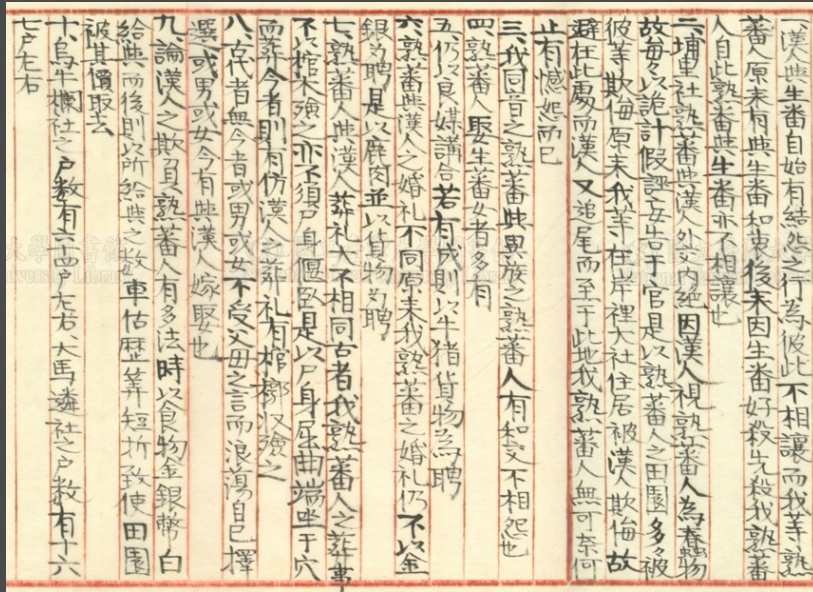 一、漢人與生番自始有結怨之行為彼此不相讓而我等熟
番人原來有與生番和束後來因生番好殺先殺我熟蕃
人自此熟番與生番亦不相讓也
二、埔里社熟蕃與漢人外交內絕因漢人視熟蕃人為蠢物
故每々以詭計假誣妄告于官是以熟蕃人之田園多々被
彼等欺侮原來我等在岸裡大社住居被漢人欺侮故
避在此處而漢人又追尾而至于此地我熟蕃人無可奈何
止有憾怨而已
三、我同首之熟蕃與異族之熟蕃人有和交不相怨也
四、熟蕃人娶生蕃女者多有
五、仍以良媒講合若有成則以牛猪貨物為聘
六、熟蕃與漢人之婚礼不同原來我熟蕃之婚礼仍不以金
銀為聘是以鹿肉並以貨物為聘
七、熟蕃人與漢人葬礼大不相同古者我熟蕃人之葬事
不以棺木殮之亦不須尸身偃臥是以尸身屈曲端坐于穴
而葬今者則有仿漢人之葬礼有棺槨收殮之
八、古代者無今者或男或女不受父母之言而浪蕩自己擇
選或男或女今有與漢人嫁娶也
九、論漢人之欺負熟蕃人有多法時以食物金銀幣白
給與而後則以所給與之數車估歷筭短折致使田園
被其價取去
十、烏牛欄社之户数有六四户左右、大馬璘社之户数有十六
七户左右
大學圖書館
University Library